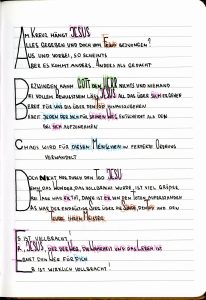 Am Kreuz hängt JESUS
Alles gegeben und doch vom Feind bezwungen?
Aus und vorbei, so scheints
Aber es kommt anders, anders als gedacht
Bezwungen kann GOTT den HERR nichts und niemand
Bei vollem Bewusstsein liess JESUS all das über sich ergehen
Bereit für uns bis über den Tod hinauszugehen
Bereit jeden der sich für seinen Weg entscheidet als den
bei sich aufzunehmen
wird für diesen Menschen in perfekte Ordnung
verwandelt
Doch nicht mal durch den Tod JESU
Denn, das Wunder, das vollbracht wurde, ist viel größer
Drei Tage war er tot, dann ist er von den Toten auferstanden
Das war der endgültige Sieg über die Sünde, den Tod und den
Teufel
Es ist vollbracht!
Er, JESUS, der der Weg, die Wahrheit und das Leben ist
ebnet den Weg für dich
Es ist wirklich vollbracht!